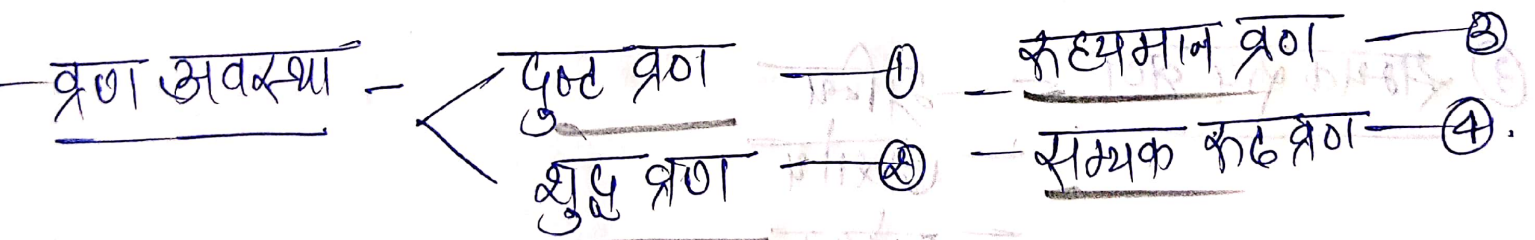 - व्रण अवस्था - दुष्ट व्रण - ① - रुह्यमान व्रण - ③
शुद्ध व्रण - ② - सम्यक रुढ व्रण - ④.